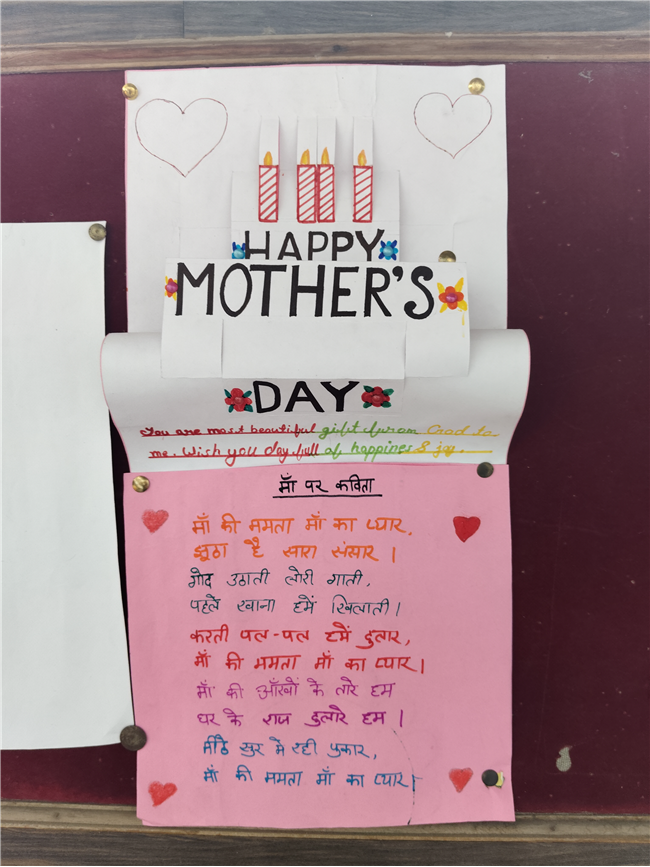 HAPPY
MOTHER'S
DAY
You are most beautiful gift furom God to
me. Wish you day full of happines & joy.
माँ पर कविता
माँ की ममता माँ का प्यार,
झूठा है सारा संसार।
गोद उठाती लोरी गाती,
पहले खाना हमें खिलाती।
करती पल-पल हमें दुलार,
माँ की ममता माँ का प्यार।
माँ की आँखों के तारे हम
घर के राज दुलारे हम।
मीठे सुर मे रही पुकार,
माँ की ममता माँ का प्यार।